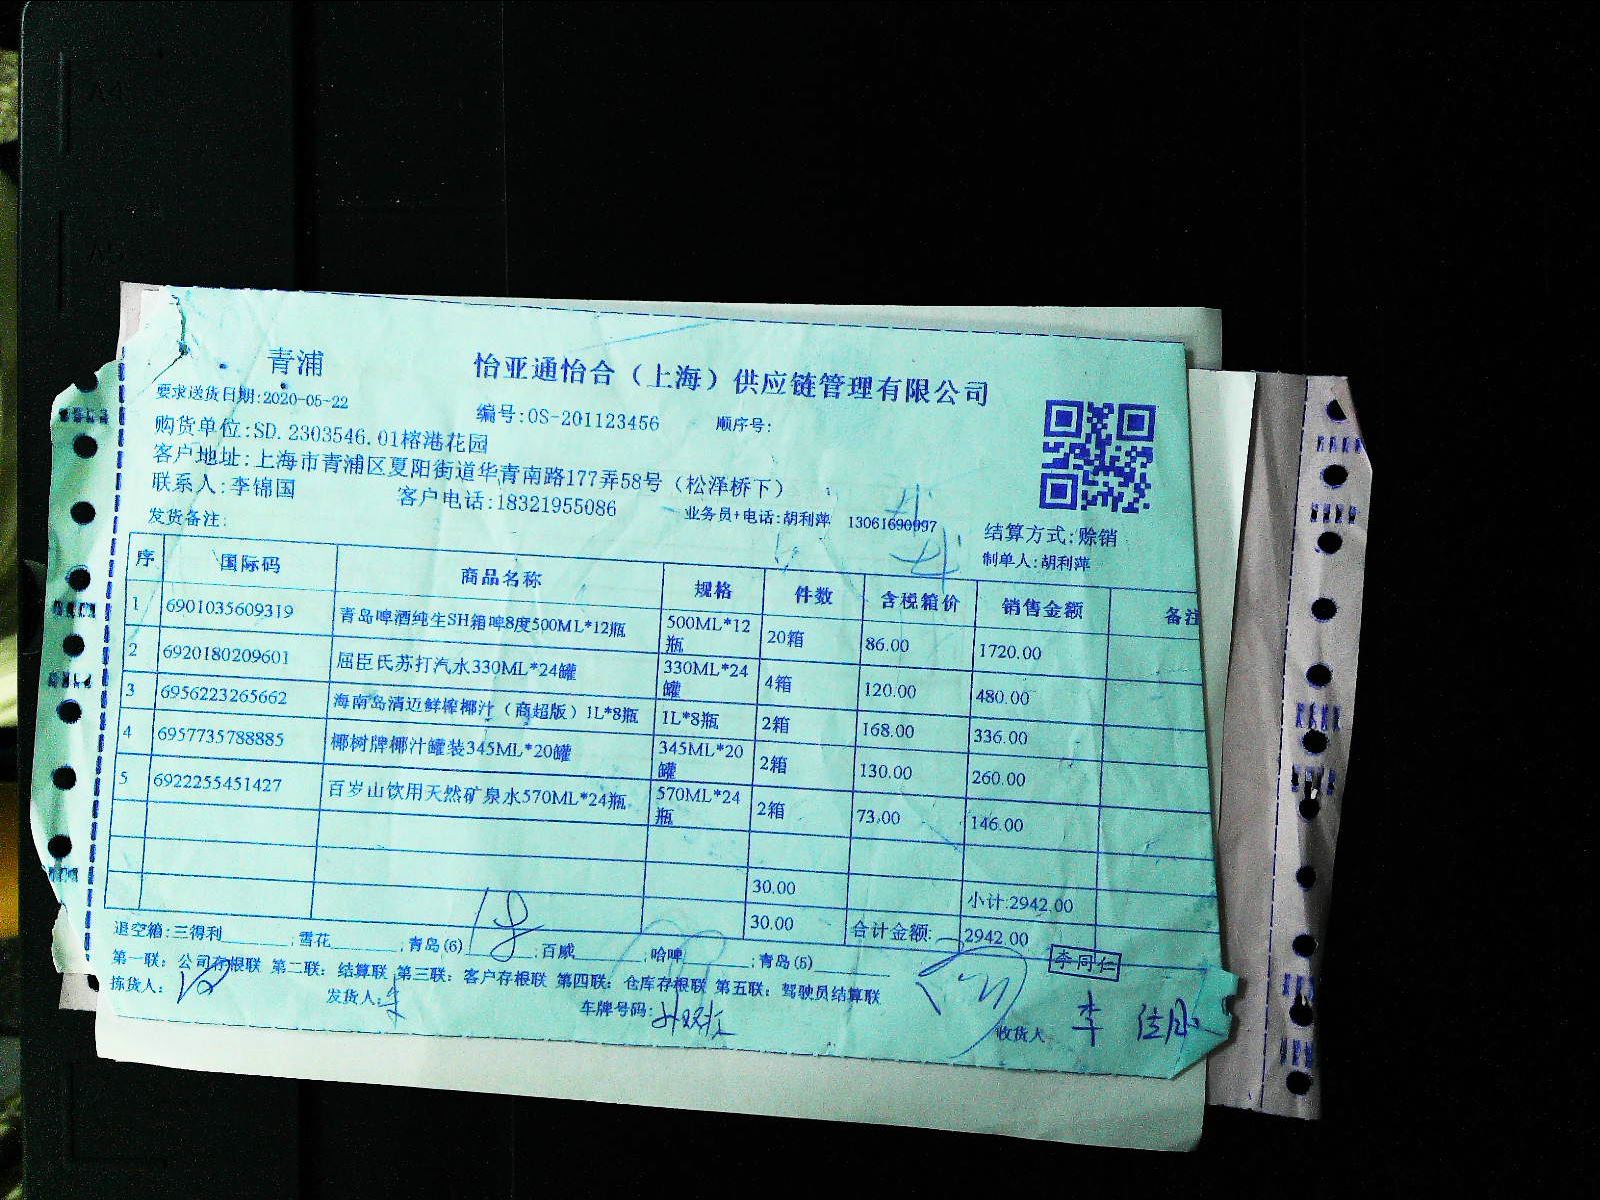 青浦
怡亚通怡合（上海）供应链管理有限公司
要求送货日期:2020-05-22
编号:OS-201123456 顺序号:
购货单位:SD.2303546.01榕港花园
客户地址:上海市青浦区夏阳街道华青南路177弄58号（松泽桥下）
联系人:李锦国 客户电话:18321955086 业务员+电话:胡利萍 13061690997 结算方式:赊销
发货备注: 制单人:胡利萍
序 国际码 商品名称 规格 件数 含税箱价 销售金额 备注
1 6901035609319 青岛啤酒纯生SH箱啤8度500ML*12瓶 500ML*12瓶 20箱 86.00 1720.00
2 6920180209601 屈臣氏苏打汽水330ML*24罐 330ML*24罐 4箱 120.00 480.00
3 6956223265662 海南岛清迈鲜榨椰汁（商超版）1L*8瓶 1L*8瓶 2箱 168.00 336.00
4 6957735788885 椰树牌椰汁罐装345ML*20罐 345ML*20罐 2箱 130.00 260.00
5 6922255451427 百岁山饮用天然矿泉水570ML*24瓶 570ML*24瓶 2箱 73.00 146.00
30.00 小计:2942.00
30.00 合计金额: 2942.00
退空箱:三得利______;雪花______;青岛(6)______;百威______;哈啤______;青岛(5)______
李同仁
第一联：公司存根联 第二联：结算联 第三联：客户存根联 第四联：仓库存根联 第五联：驾驶员结算联
拣货人: 发货人: 车牌号码: 收货人 李